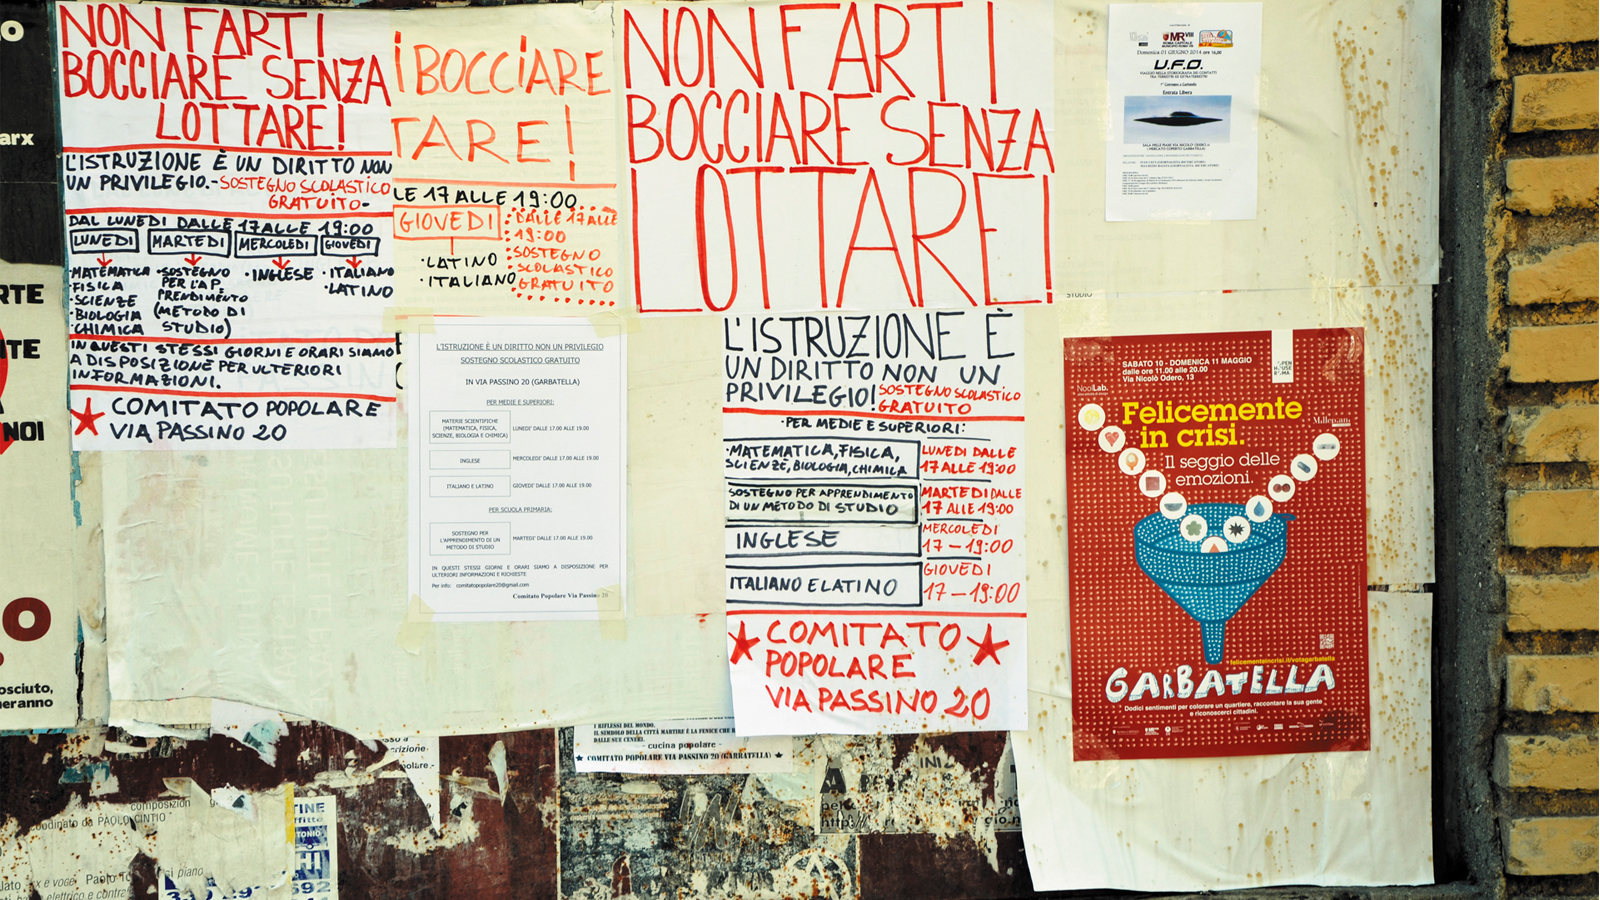 NON FARTI
BOCCIARE SENZA
LOTTARE!
L'ISTRUZIONE È UN DIRITTO NON
UN PRIVILEGIO.- SOSTEGNO SCOLASTICO
GRATUITO-
DAL LUNEDI DALLE 17 ALLE 19:00
LUNEDI MARTEDI MERCOLEDI GIOVEDI
·MATEMATICA
·FISICA
·SCIENZE
·BIOLOGIA
·CHIMICA
·SOSTEGNO
PER L'AP.
PRENDIMENTO
(METODO DI
STUDIO)
·INGLESE
·ITALIANO
·LATINO
IN QUESTI STESSI GIORNI E ORARI SIAMO
A DISPOSIZIONE PER ULTERIORI
INFORMAZIONI.
COMITATO POPOLARE
VIA PASSINO 20
I BOCCIARE
TARE!
LE 17 ALLE 19:00
GIOVEDI
·LATINO
·ITALIANO
DALLE 17 ALLE
19:00
SOSTEGNO
SCOLASTICO
GRATUITO
L'ISTRUZIONE È UN DIRITTO NON UN PRIVILEGIO
SOSTEGNO SCOLASTICO GRATUITO
IN VIA PASSINO 20 (GARBATELLA)
PER MEDIE E SUPERIORI:
MATERIE SCIENTIFICHE
(MATEMATICA, FISICA,
SCIENZE, BIOLOGIA E CHIMICA)
LUNEDI' DALLE 17.00 ALLE 19.00
INGLESE
MERCOLEDI' DALLE 17.00 ALLE 19.00
ITALIANO E LATINO
GIOVEDI' DALLE 17.00 ALLE 19.00
PER SCUOLA PRIMARIA:
SOSTEGNO PER
L'APPRENDIMENTO DI UN
METODO DI STUDIO
MARTEDI' DALLE 17.00 ALLE 19.00
IN QUESTI STESSI GIORNI E ORARI SIAMO A DISPOSIZIONE PER
ULTERIORI INFORMAZIONI E RICHIESTE
Per info: comitatopopolare20@gmail.com
Comitato Popolare Via Passino 20
NON FARTI
BOCCIARE SENZA
LOTTARE!
L'ISTRUZIONE È
UN DIRITTO NON UN
PRIVILEGIO! SOSTEGNO SCOLASTICO
GRATUITO
·PER MEDIE E SUPERIORI:
·MATEMATICA, FISICA,
SCIENZE, BIOLOGIA, CHIMICA
LUNEDI DALLE
17 ALLE 19:00
SOSTEGNO PER APPRENDIMENTO
DI UN METODO DI STUDIO
MARTEDI DALLE
17 ALLE 19:00
INGLESE
MERCOLEDI
17 - 19:00
ITALIANO E LATINO
GIOVEDI
17 - 19:00
COMITATO
POPOLARE
VIA PASSINO 20
STUDIO
Domenica 01 GIUGNO 2014 ore 16,00
U.F.O.
VIAGGIO NELLA STORIOGRAFIA DEI CONTATTI
TRA TERRESTRI ED EXTRATERRESTRI
Entrata Libera
SABATO 10 - DOMENICA 11 MAGGIO
dalle ore 11.00 alle 20.00
Via Nicolò Odero, 13
OPEN
HOUSE
ROMA
NooLab.
Felicemente
in crisi.
Il seggio delle
emozioni.
felicementeincrisi.it/votogarbatella
GARBATELLA
Dodici sentimenti per colorare un quartiere, raccontare la sua gente
e riconoscerci cittadini.
I RIFLESSI DEL MONDO.
IL SIMBOLO DELLA CITTÀ MARTIRE È LA FENICE CHE R
DALLE SUE CENERI.
- cucina popolare -
★ COMITATO POPOLARE VIA PASSINO 20 (GARBATELLA) ★
arx
RTE
NOI
O
osciuto,
neranno
crizione-
polare.-
composizion
oordinato da PAOLO CINTIO
TINE
TONIO
HI
592
piano
http://